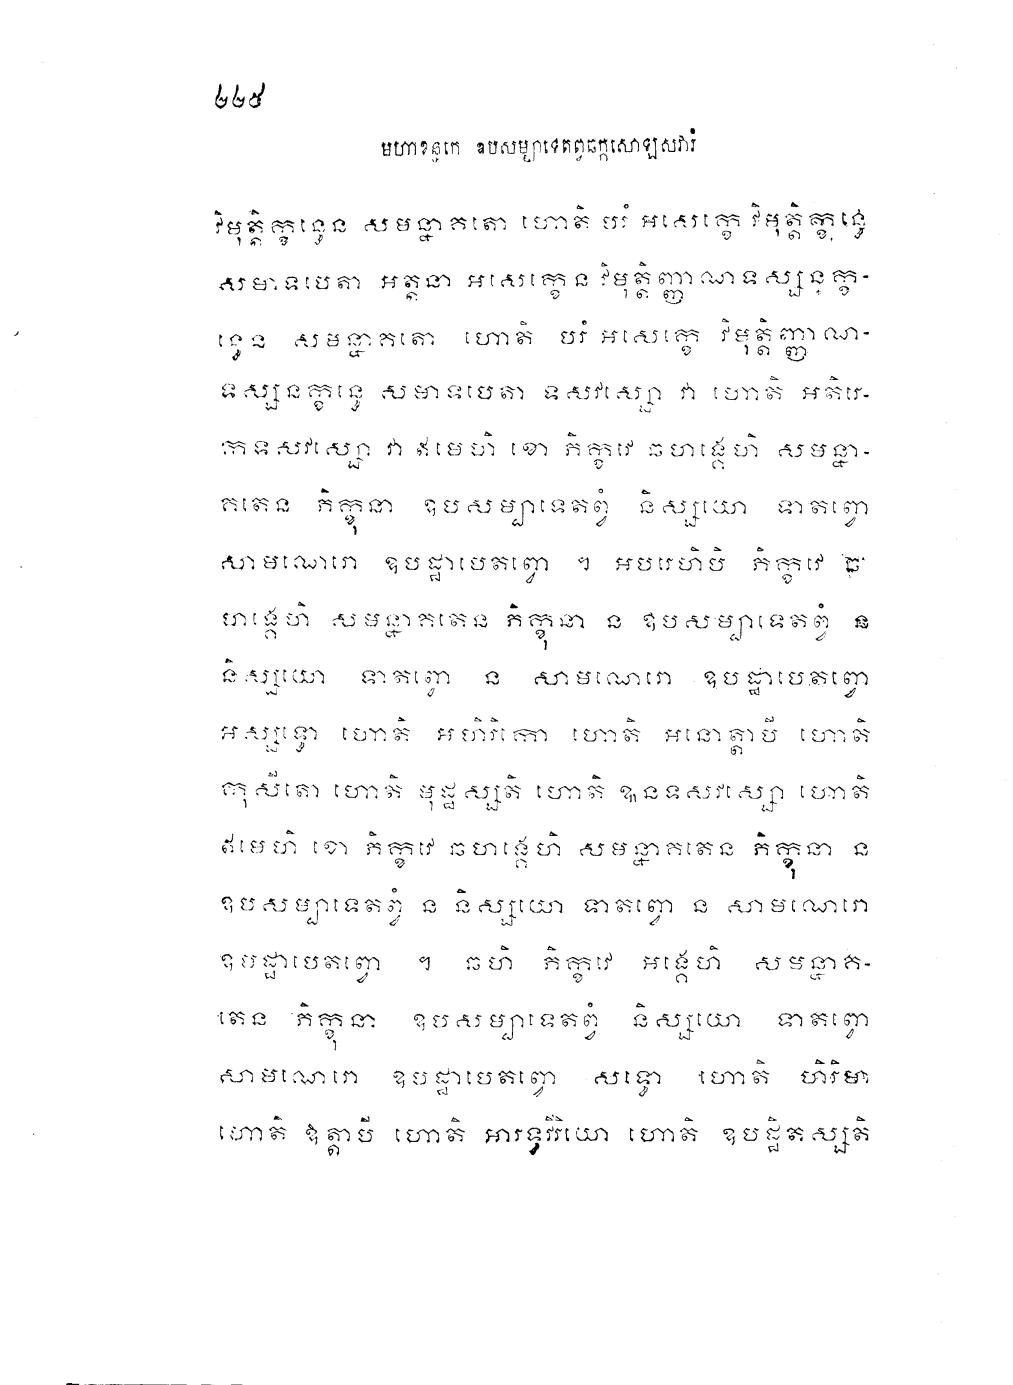 ២២៥
មហាខន្ធកេ ឧបសម្បាទេតព្វឆក្កសោឡសវារំ
វិមុត្តិក្ខន្ធេន សមន្នាគតោ ហោតិ បរំ អសេក្ខេ វិមុត្តិក្ខន្ធេ
សមាទបេតា អត្តនា អសេក្ខេន វិមុត្តិញ្ញាណទស្សនក្ខ-
ន្ធេន សមន្នាគតោ ហោតិ បរំ អសេក្ខេ វិមុត្តិញ្ញាណ-
ទស្សនក្ខន្ធេ សមាទបេតា ទសវស្សោ វា ហោតិ អតិរេ-
កទសវស្សោ វា ឥមេហិ ខោ ភិក្ខវេ ឆហង្គេហិ សមន្នា-
គតេន ភិក្ខុនា ឧបសម្បាទេតព្វំ និស្សយោ ទាតព្វោ
សាមណេរោ ឧបដ្ឋាបេតព្វោ ។ អបរេហិបិ ភិក្ខវេ ឆ-
ហង្គេហិ សមន្នាគតេន ភិក្ខុនា ន ឧបសម្បាទេតព្វំ ន
និស្សយោ ទាតព្វោ ន សាមណេរោ ឧបដ្ឋាបេតព្វោ
អស្សទ្ធោ ហោតិ អហិរិកោ ហោតិ អនោត្តាបី ហោតិ
កុសីតោ ហោតិ មុដ្ឋស្សតិ ហោតិ ឩនទសវស្សោ ហោតិ
ឥមេហិ ខោ ភិក្ខវេ ឆហង្គេហិ សមន្នាគតេន ភិក្ខុនា ន
ឧបសម្បាទេតព្វំ ន និស្សយោ ទាតព្វោ ន សាមណេរោ
ឧបដ្ឋាបេតព្វោ ។ ឆហិ ភិក្ខវេ អង្គេហិ សមន្នាគ-
តេន ភិក្ខុនា ឧបសម្បាទេតព្វំ និស្សយោ ទាតព្វោ
សាមណេរោ ឧបដ្ឋាបេតព្វោ សទ្ធោ ហោតិ ហិរិមា
ហោតិ ឱត្តាបី ហោតិ អារទ្ធវីរិយោ ហោតិ ឧបដ្ឋិតស្សតិ